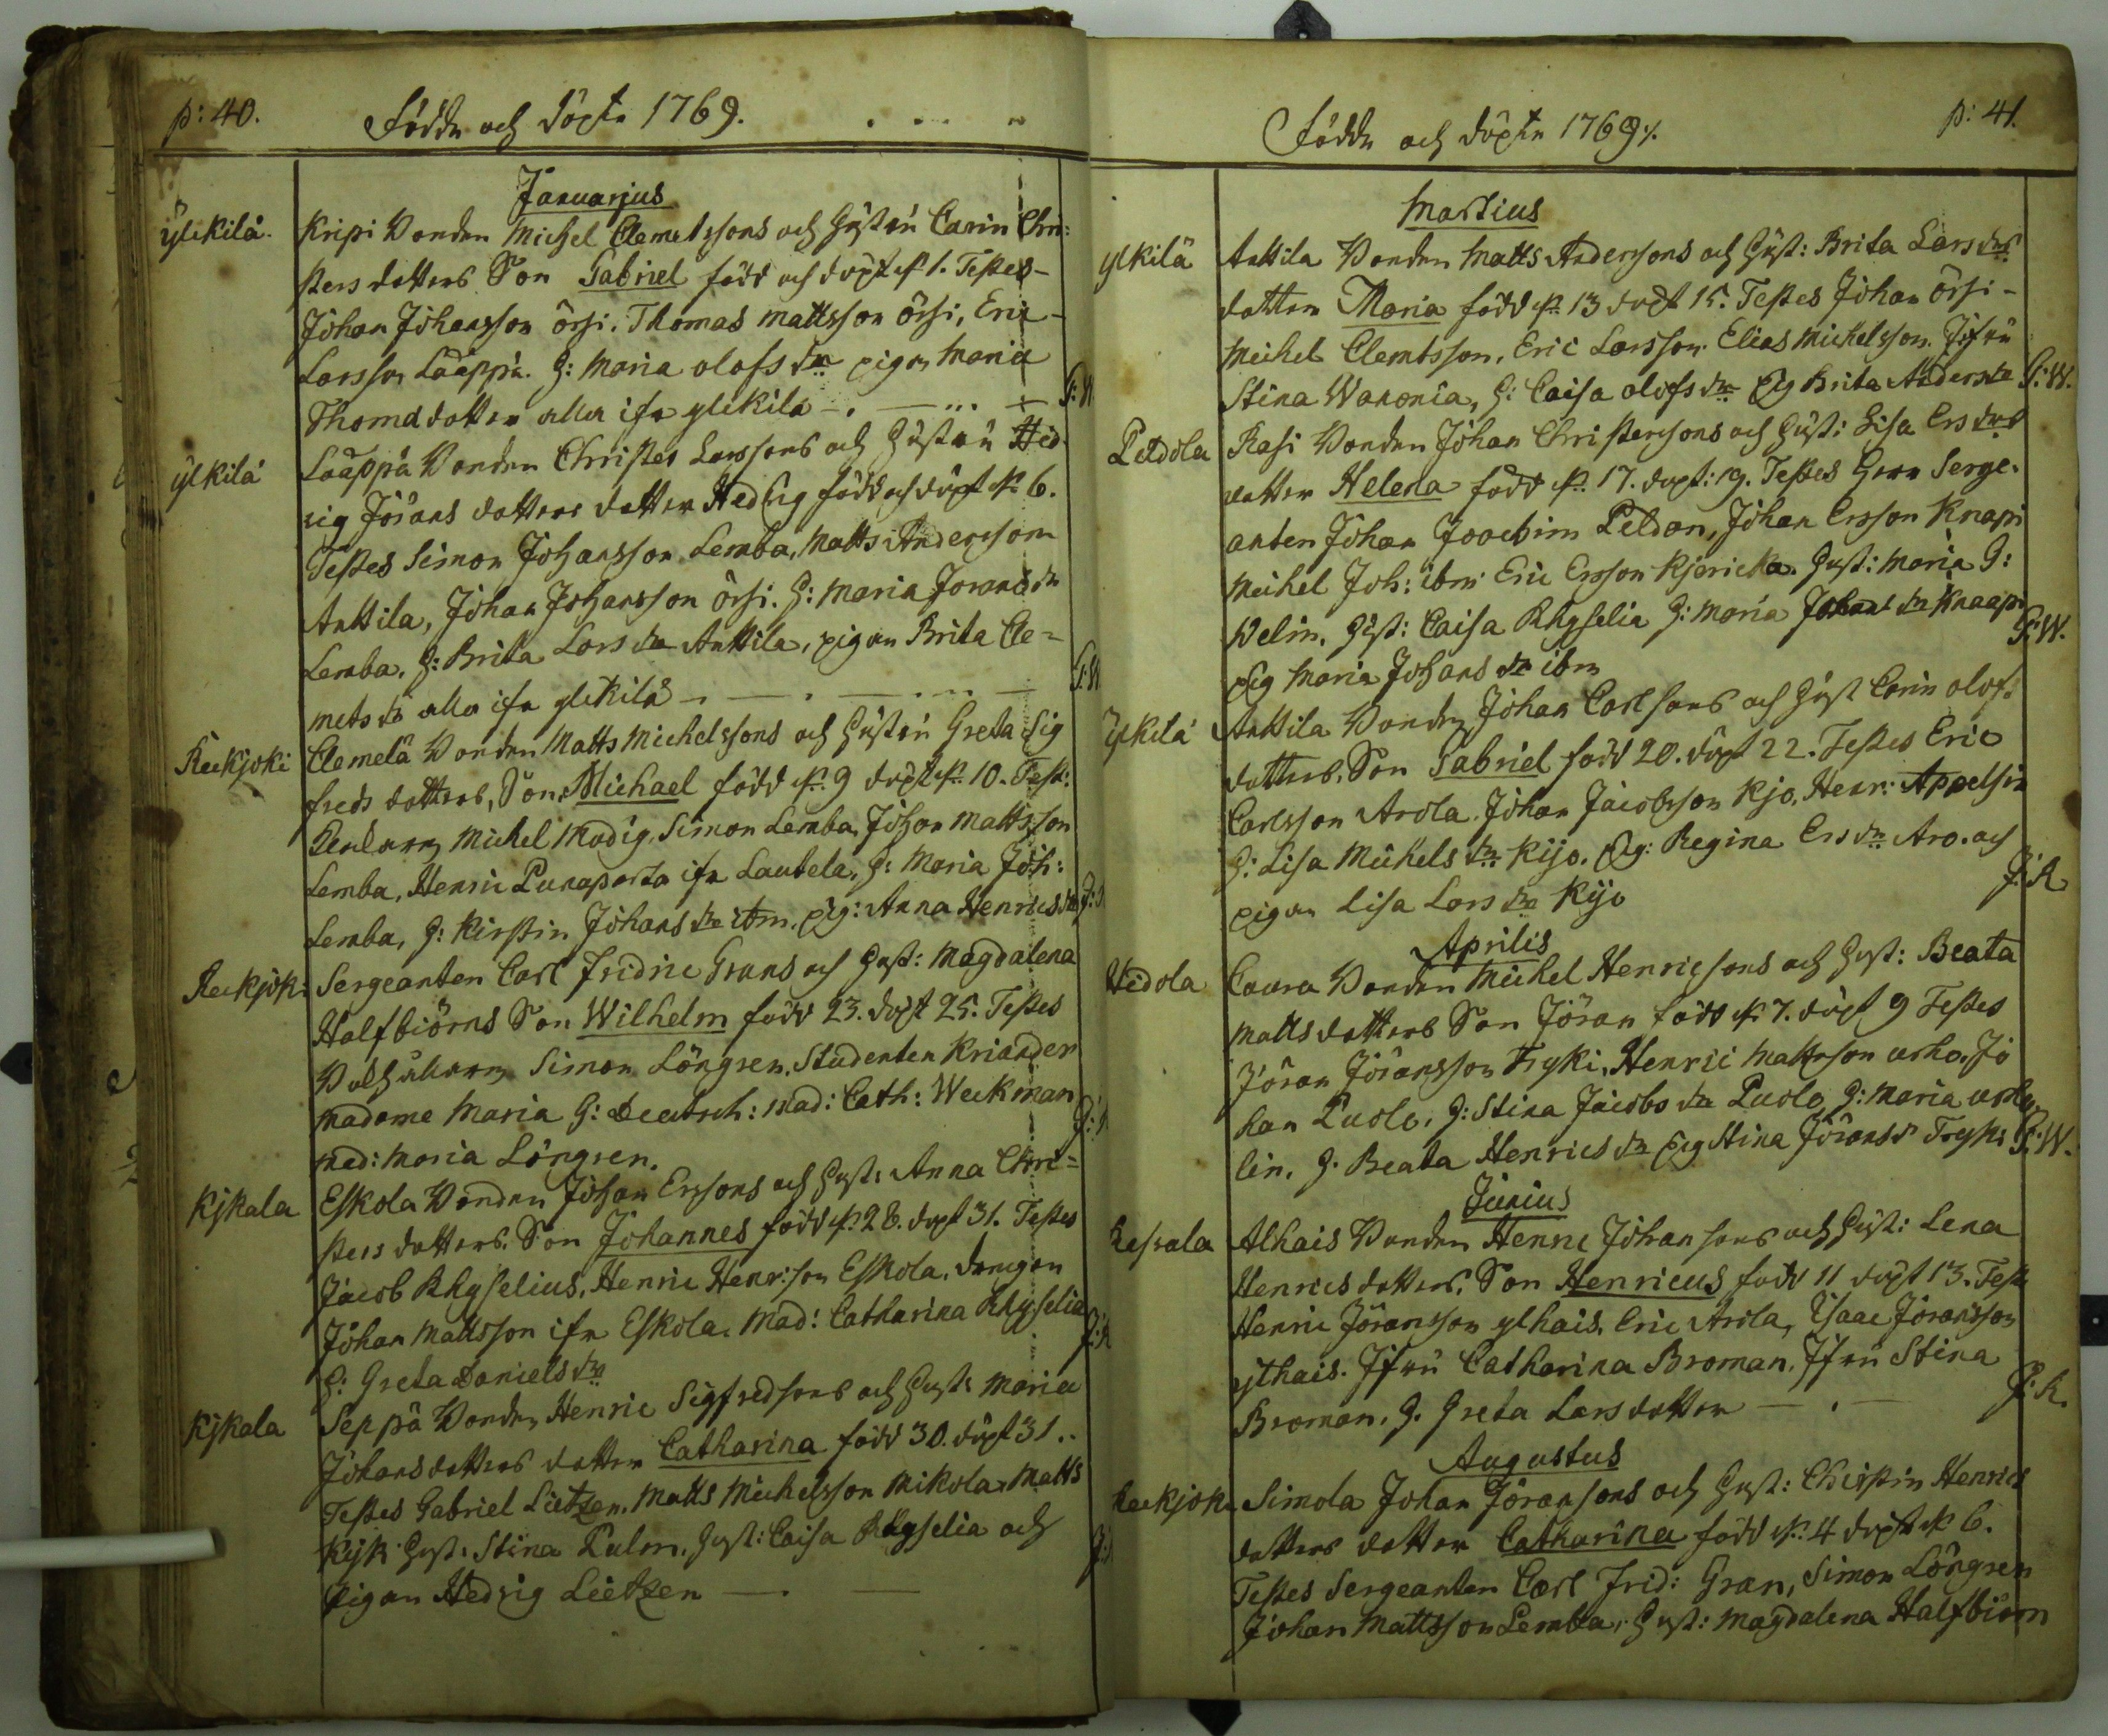 p: 40.
Födde och döpte 1769.
Januarjus
ylikilä. Knipi Bonden Michel Clemetssons och Hustru Carin Chri:
sters dotters Son Gabriel född och döpt d. 1. Testes
Johan Johansson örsi. Thomas Mattsson örsi, Eric
Larsson Lääppä. H: Maria olofs dr pigan Maria
Thomædotter alla ifr ylikilä
ylkilä Lääppä Bonden Christer Larssons och Hustru Hed
vig Jörans dotters dotter Hedvig född och döpt d. 6.
Testes Simon Johansson Lemba, Matts Andersson
Anttila, Johan Johansson örsi. H: Maria Jorans dr
Lemba. H: Brita Lars dr Anttila, pigan Brita Cle=
mets dr alla ifr ylikilä
Reekjoki Clemelä Bonden Matts Michelssons och Hustru Greta Sig
freds dotters, Son Michael född d. 9 döpt d. 10. Test:
Michel Modig. Simon Lemba, Johan Mattsson
Lemba, Henric Punaparta ifr Lautela, H: Maria Joh:
Lemba, H: Kirstin Johans dr ibm. pig: Anna Henrics dr
Reekjoki Sergeanten Carl Fridric Grans och Hust: Magdalena
Halfbiörns Son Wilhelm född 23. döpt 25. Testes
Simon Löngren. Studenten Kriander
Madame Maria G: Deutsch: Mad: Cath: Weckman
Mad: Maria Löngren.
Kjkala Eskola Bonden Johan Erssons och Hust: Anna Chri=
sters dotters. Son Johannes född d. 28. döpt 31. Testes
Jacob Rhyselius, Henric Henr: son Eskola, drengen
Johan Mattsson ifr Eskola. Mad: Catharina Rhyselia
H: Greta Daniels dr
Kjkala Seppä Bonden Henric Sigfredsons och Hust: Maria
Johansdotters dotter Catharina född 30. döpt 31.
Testes Gabriel Lietzen, Matts Michelsson Mikola, Matts
Kijk Hust: Stina Palm. Hust: Caisa Rhyselia och
Pigan Hedvig Lietzen
Födde och döpte 1769.
p: 41.
Martius
ylkilä Anttila Bonden Matts Anderssons och Hust: Brita Lars drs
dotter Maria född d. 13 döpt 15. Testes Johan örsi
Michel Clemtsson, Eric Larsson. Elias Michelsson. Jfru
Stina Wanonia, H: Caisa olofs dr Pig Brita Anders dr P: W.
Peldola Rasi Bonden Johan Christerssons och Hust: Lisa Ers drs
dotter Helena född d. 17. döpt: 19. Testes Herr Serge.
anten Johan Joachim Peldan, Johan Ersson Knapi
Michel Joh: ibm Eric Ersson Kjericka. Hust: Maria G:
Welin, Hust: Caisa Rhyselia H: Maria Johans dr Knaapi P: W.
pig Maria Johans dr ibm
ylkilä Anttila Bonden Johan Carlsons och Hust Carin olof:
dotters. Son Gabriel född 20. döpt 22. Testes Eric
Carlsson Arola. Johan Jacobsson Kjo, Henr: Appelgin
H: Lisa Michels dr Kijo. Pig: Regina Ers dr Aro. och
pigan Lisa Lars dr Kijo J: R
Aprilis
Hidola Caura Bonden Michel Henricsons och Hust: Beata
Matts dotters Son Jöran född d. 7. döpt 9 Testes
Jöran Jöransson Fryki, Henric Mattsson urho. Jo
han Puolo, H: Stina Jacobs dr Puolo, H: Maria
lin, H. Beata Henrics dr pig Stina Jörans dr Fryki P: W.
Junius
Alhais Bonden Henric Johansons och Hust: Lena
Henrics dotters, Son Henricus född 11 döpt 13. Test
Henric Jöransson ylhais. Eric Arola, Isaac Joransson
ylhais. Jfru Catharina Broman, Jfru Stina
Broman. H. Greta Lars dotter J: R.
Augustus
Reekjok. Simola Johan Jöransons och Hust: Chirstin Henrics
dotters dotter Catharina född d. 4 döpt d. 6.
Testes Sergeanten Carl Frid: Gran, Simon Löngren
Johan Mattsson Lemba, Hust: Magdalena Halfbiörn